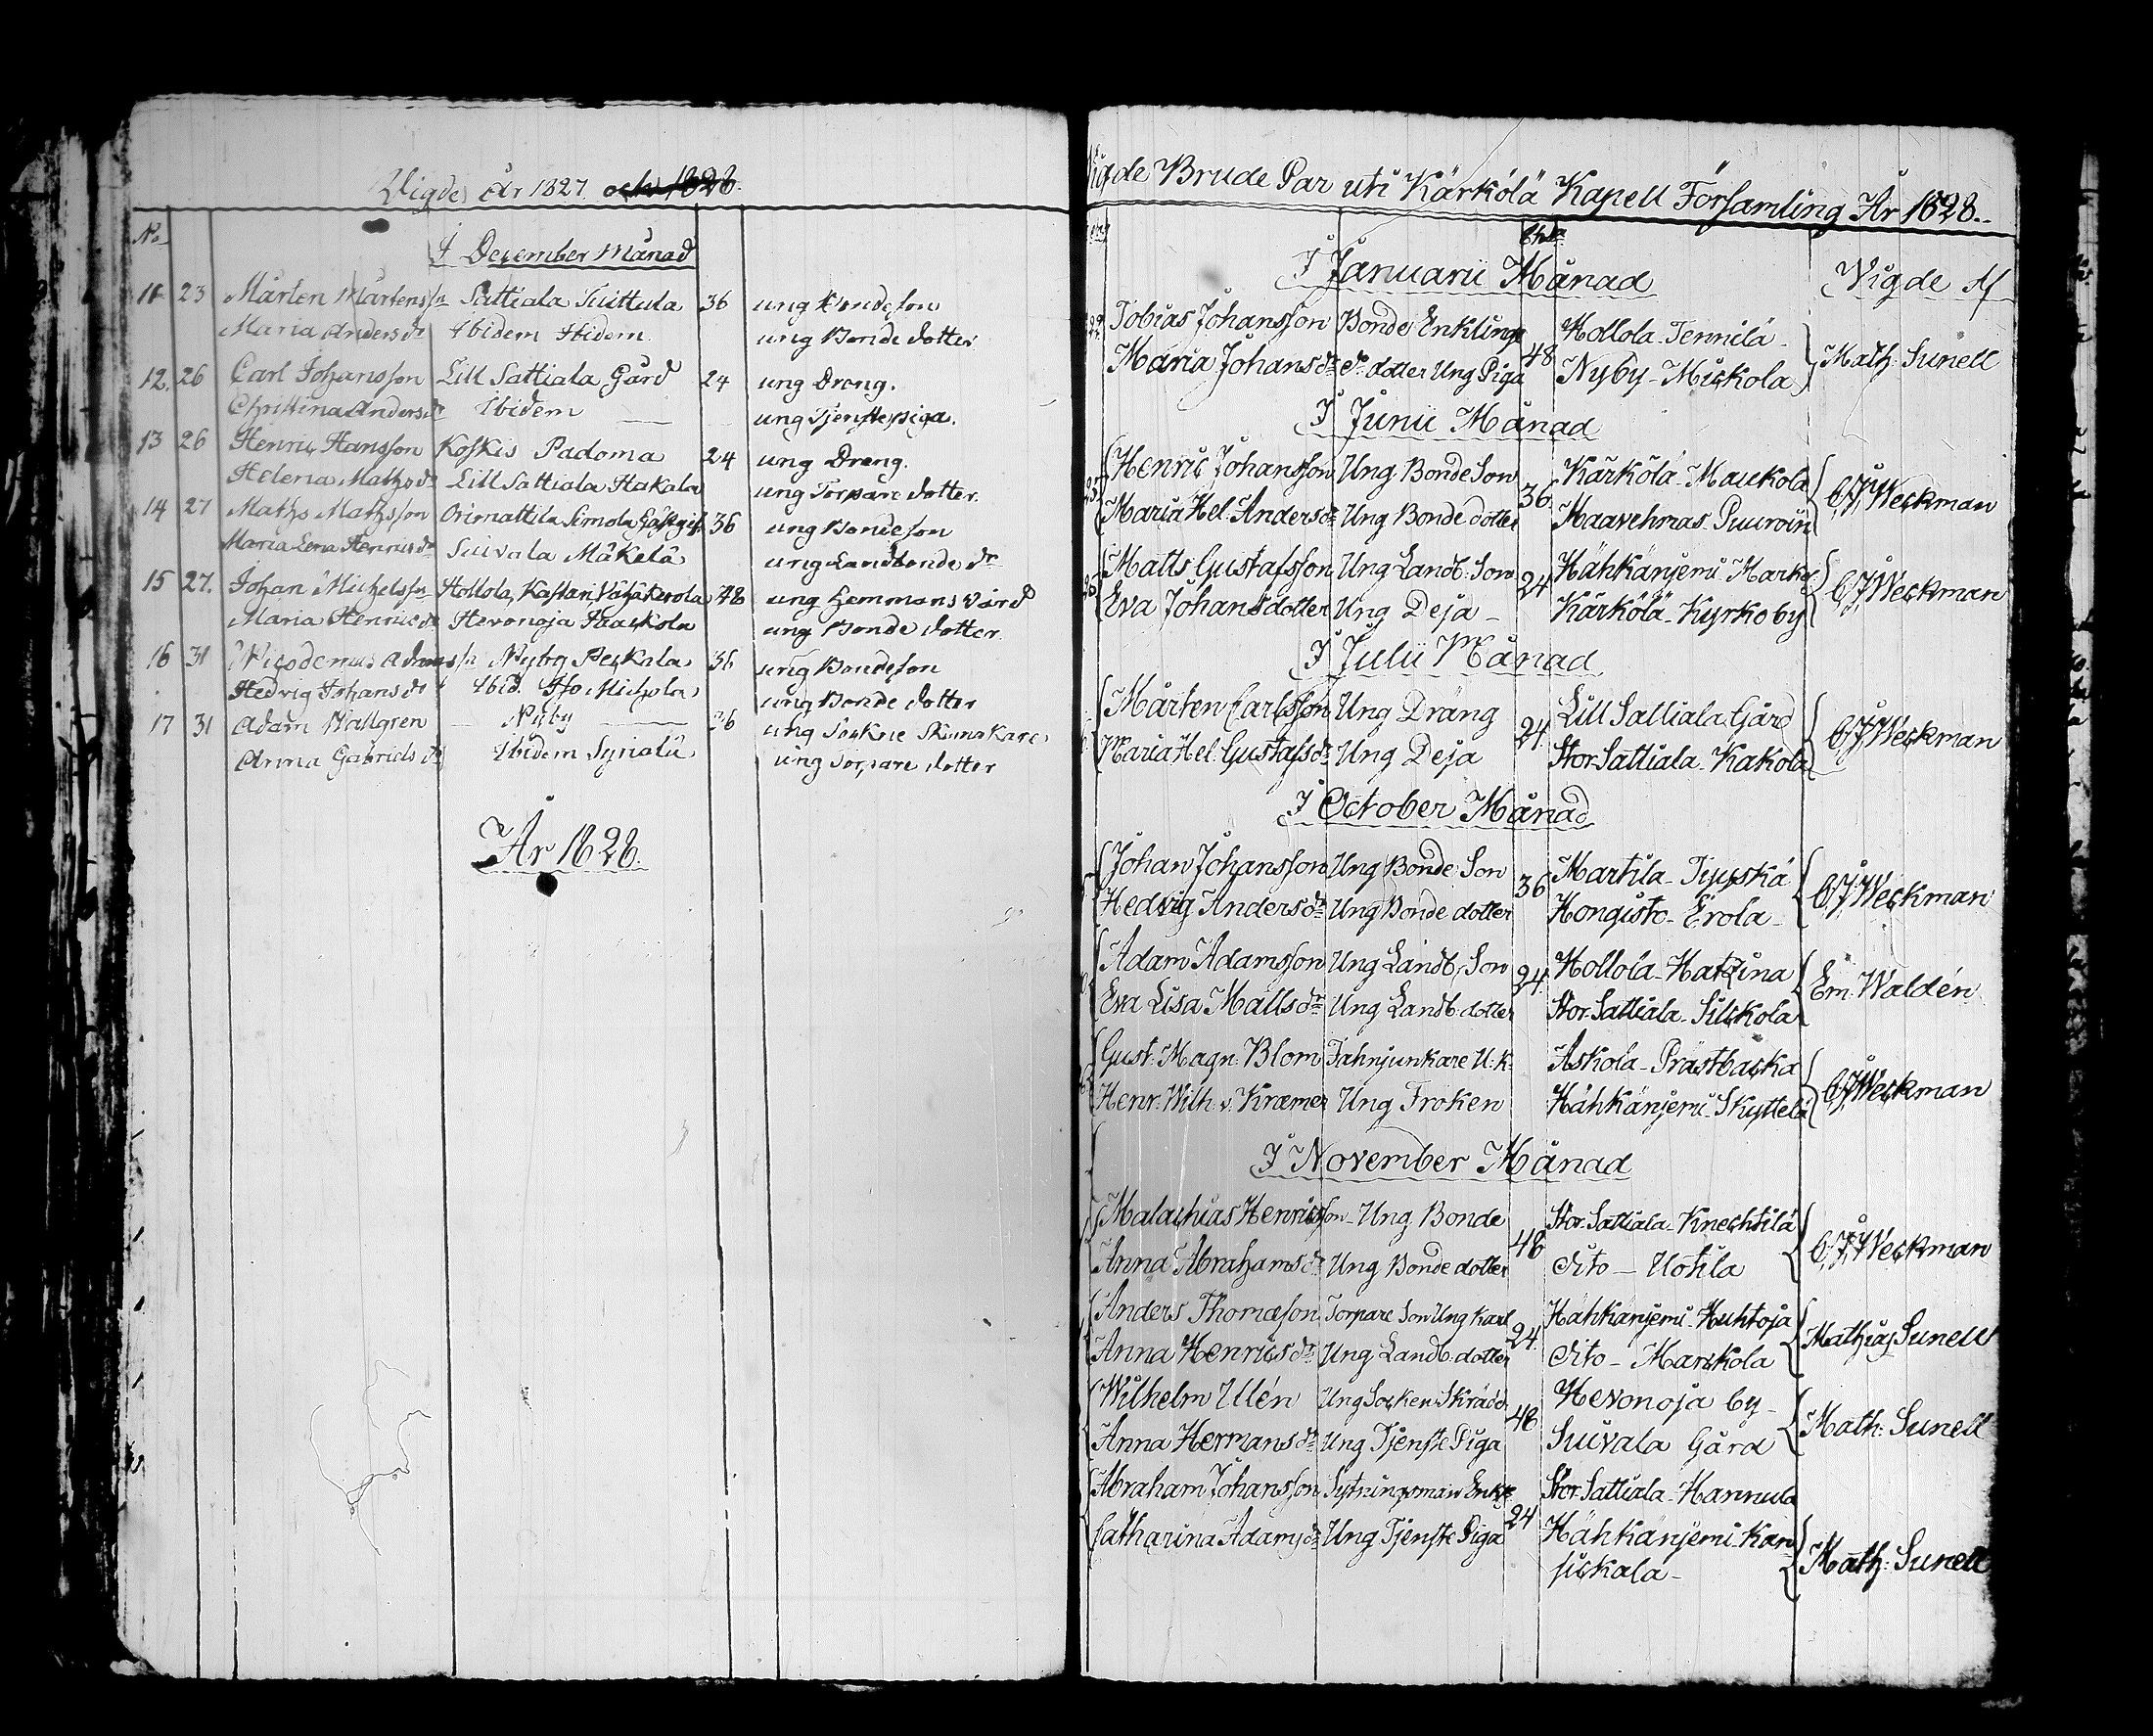 Vigde År 1827. och 1828.
No
I December Månad
11 23 Mårten Mårtensn Sattiala Tuittula 36 ung Bondeson
Maria Andersdr Ibidem Ibidem ung Bonde dotter
12. 26 Carl Johansson Lill Sattiala Gård 24 ung Dreng.
Christina Andersdr Ibidem ung Tjenstepiga.
13 26 Henric Hansson Koskis Padoma 24 ung Dreng.
Helena Mathsdr Lill Sattiala Hakala ung Torpare dotter.
14 27 Maths Mathsson Orimattila Simola Gästgif. 36 ung Bondeson
Maria Lena Henricsdr Suivala Mäkelä ung Landbonde dr
15 27. Johan Michelsson Hollola, Kastari Vähäkerola 48 ung Hemmans Värd
Maria Henricsdr Hevonoja Paackola ung Bonde dotter.
16 31 Nicodemus Adamsn Nyby Peckala 36 ung Bondeson
Hedvig Johansdr Ibid. Iso Mickola ung Bonde dotter
17 31 Adam Hallgren Nyby 36 ung Sockne Skinnakare
Anna Gabrielsdr Ibidem Syrjälä ung Torpare dotter
År 1828.
Vigde Brude Par uti Kärkölä Kapell Församling År 1828.
I Januarii Månad Vigde af
22 Tobias Johansson Bonde Enkling 48 Hollola-Tennilä
Maria Johansdr do dotter Ung Piga Nyby-Mickola Math: Sunell
I Junii Månad
Henric Johansson Ung Bonde Son 36 Kärkölä-Maukola
Maria Hel: Andersdr Ung Bonde dotter Maavehmas-Puuroin C.J. Weckman
Matts Gustafsson Ung Landb: Son 24 Hähkänjemi-Markol
Eva Johansdotter Ung Deja Kärkölä-Kyrkoby C.J. Weckman
I Julii Månad
Mårten Carlsson Ung Dräng 24. Lill Sattiala Gård
Maria Hel: Gustafsdr Ung Deja Stor Sattiala-Kakola C.J. Weckman
I October Månad
Johan Johansson Ung Bonde Son 36 Martila-Tjuská
Hedvig Andersdr Ung Bonde dotter Hongisto-Erola C.J. Weckman
Adam Adamsson Ung Landb: Son 24. Hollola-Hatsina
Eva Lisa Mattsdr Ung Landb: dotter Stor Sattiala-Silckola Em: Waldén
Gust: Magn: Blom Fahnjunkare U:K: Askola-Prästbacka
Henr: Wilh: v. Kræmer Ung Fröken Hähkänjemi-Skyttelä C.J. Weckman
I November Månad
Malachias Henricsson Ung Bonde 48 Stor Sattiala-Knechtilä
Anna Abrahamsdr Ung Bonde dotter dito - Uotila C.J. Weckman
Anders Thomæson Torpare Son Ung karl 24. Hähkänjemi-Huhtoja
Anna Henricsdr Ung Landb: dotter dito - Marckola Mathias Sunell
Wilhelm Ulén Ung Socken Skrädd: 48 Hevonoja by
Anna Hermansdr Ung Tjenste Piga Suivala Gård Math: Sunell
Abraham Johansson Sytningsman Enkl: 24 Stor Sattiala-Hannula
Catharina Adamsdr Ung Tjenste Piga Hähkänjemi-Kan
sickala Math: Sunell